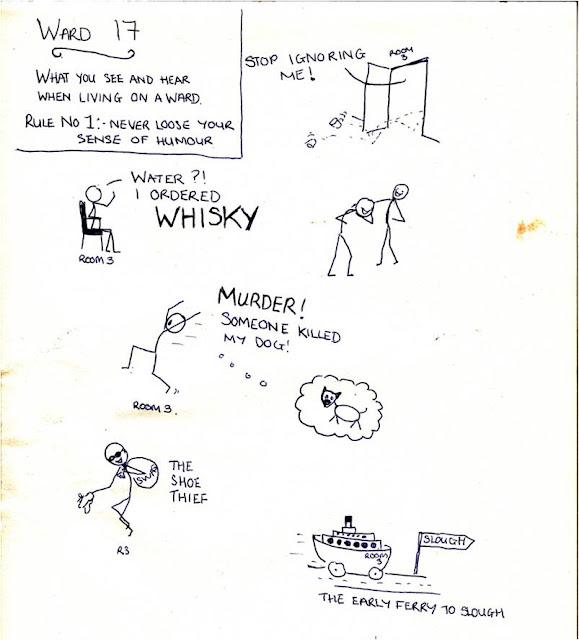 WARD 17
WHAT YOU SEE AND HEAR
WHEN LIVING ON A WARD.
RULE NO 1:- NEVER LOOSE YOUR
SENSE OF HUMOUR
STOP IGNORING
ME!
ROOM
3
WATER?!
I ORDERED
WHISKY
ROOM 3
MURDER!
SOMEONE KILLED
MY DOG!
ROOM 3.
SWAG
THE
SHOE
THIEF
R3
SLOUGH
ROOM
3
THE EARLY FERRY TO SLOUGH